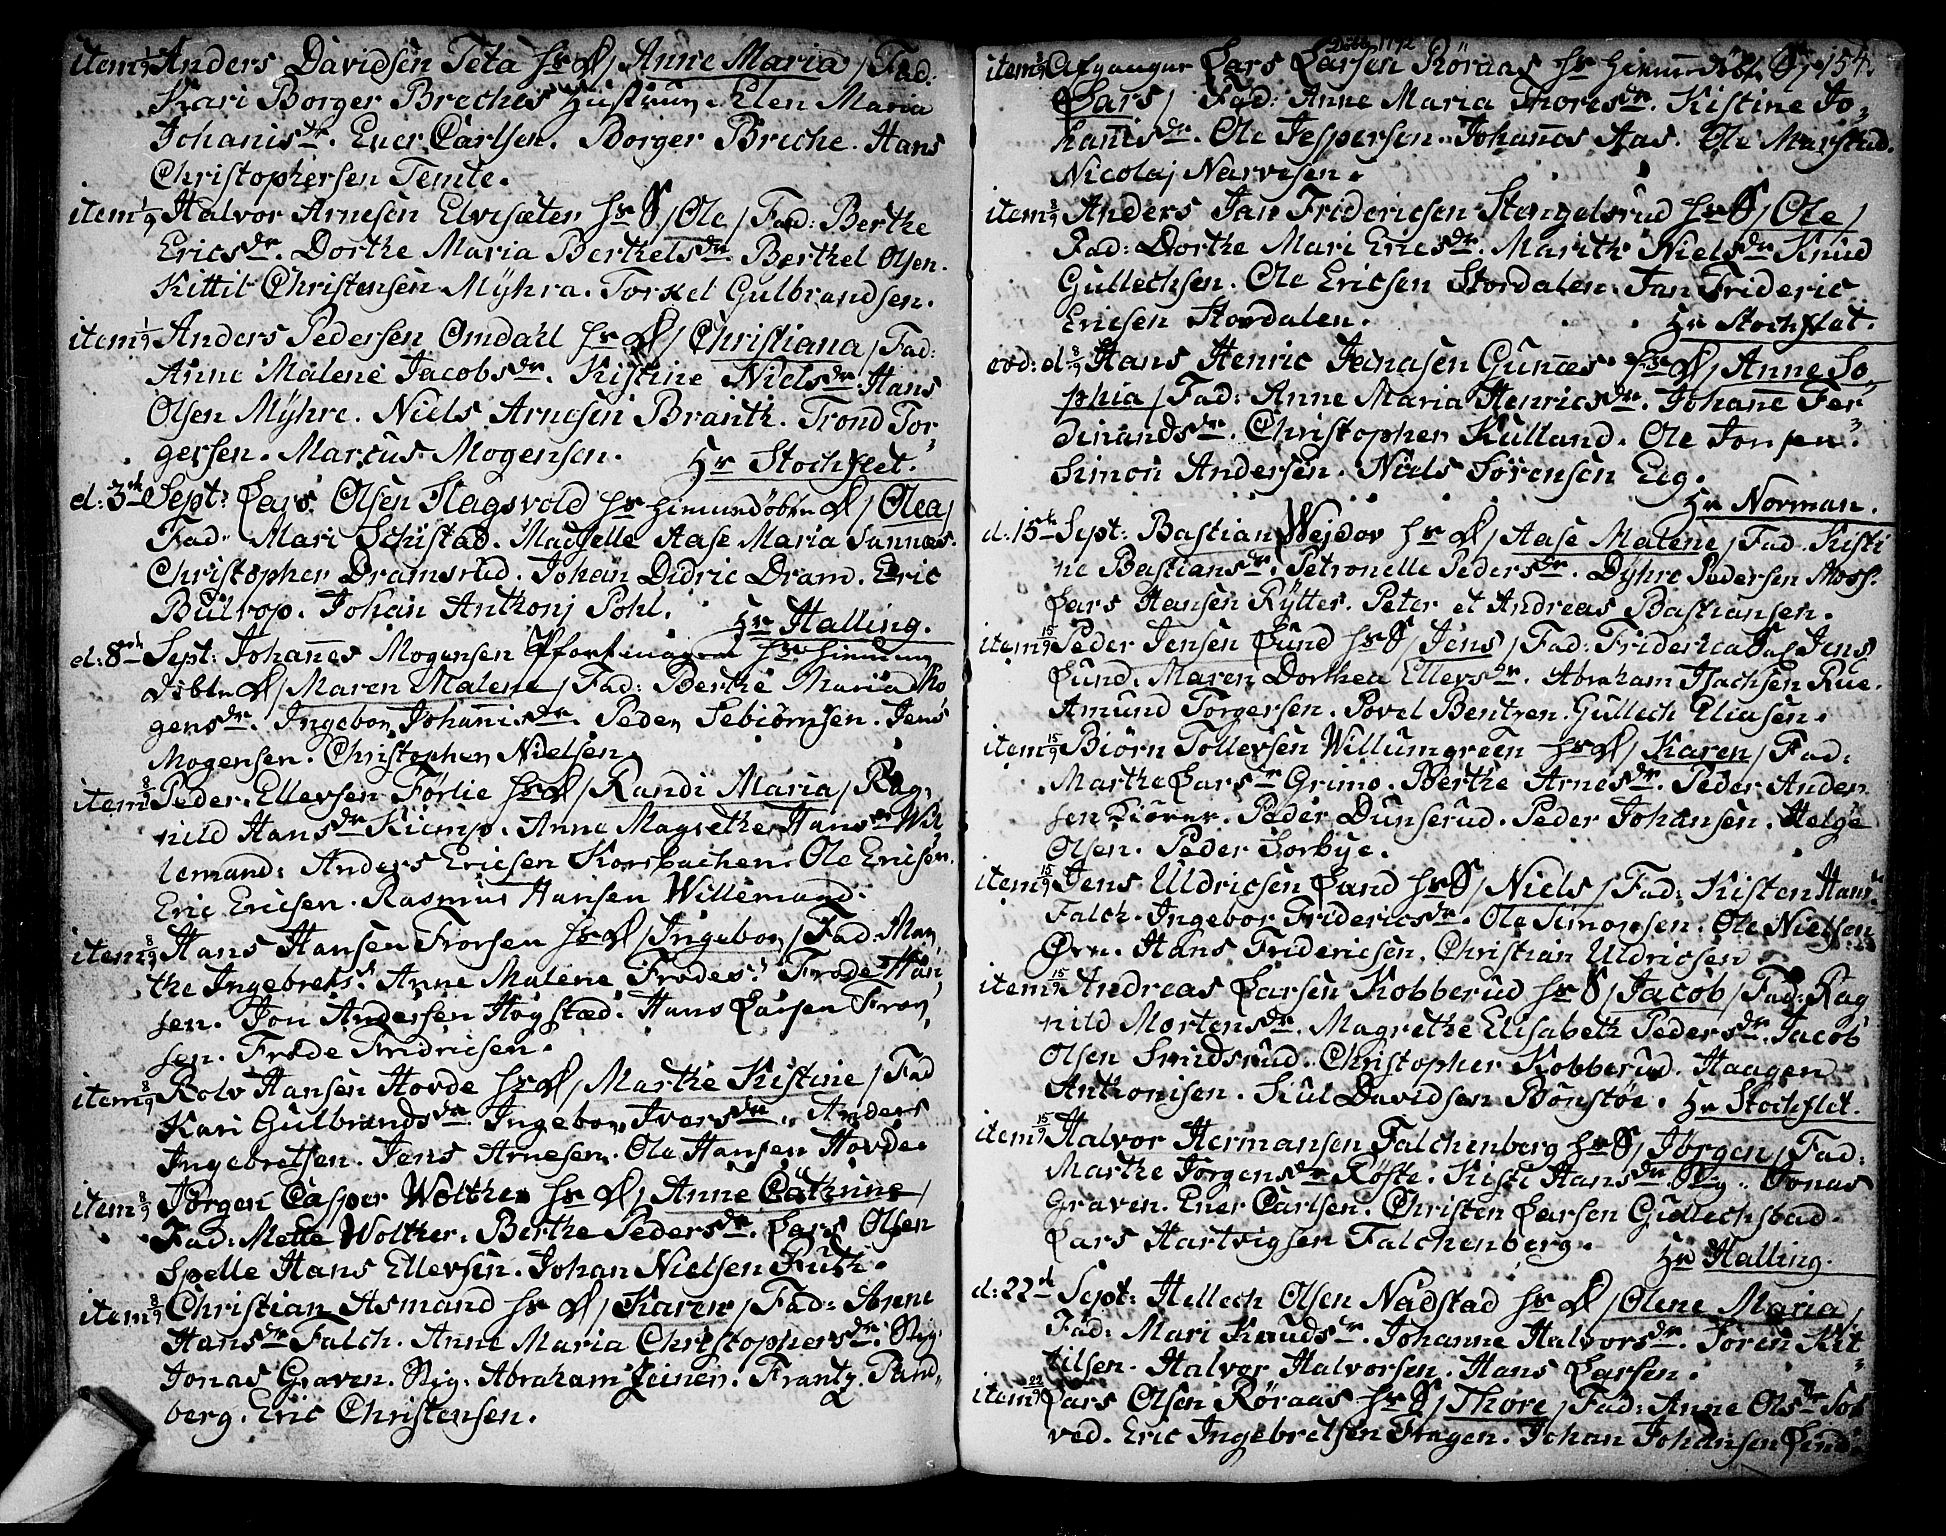 item 1/9 Anders Davidsen Teta hr D / Anne Maria / Fad:
Kari Borger Breches Hustrue. Elen Maria
Johanisdr. Ener Carlsen. Borger Breche. Hans
Christophersen Temte.
item 1/9 Halvor Arnesen Elvisæter hr S / Ole / Fad: Berthe
Ericsdr. Dorthe Maria Berthelsdr. Berthel Olsen.
Kittil Christensen Mÿhra. Torkel Gulbrandsen.
item 1/9 Anders Pedersen Omdahl hr D / Christiana / Fad:
Anne Malene Jacobsdr. Kistine Nielsdr. Hans
Olsen Mÿhre. Niels Arnesen Branth. Trond Tor-
gersen. Marcus Mogensen. Hr Stochflet.
d: 3de Sept: Lars Olsen Flagsvold hr hiemmedøbte D / Olea /
Fad: Mari Schistad. Madselle Aase Maria Sannæs.
Christopher Dramsrud. Johan Didric Dram. Eric
Bültrop. Johan Anthonj Pohl. Hr Halling.
d: 8de Sept: Johannes Mogensen hr hiemme
døbte D / Maren Malene / Fad: Berthe Maria Mo
gensdr. Ingebor Johannisdr. Peder Sebiørnsen. Jens
Mogensen. Christopher Nielsen.
item 8/9 Peder Ellevsen Førlie hr D / Randi Maria / Rag-
nild Hansdr Kiemp. Anne Magrethe Hansdr Wil
lemand: Anders Ericsen Korsbachen. Ole Ericsen.
Eric Ericsen. Rasmus Hansen Willemand.
item 8/9 Hans Hansen Frorsen hr D / Ingebor / Fad: Mar
the Ingebrets. Anne Malene Frodes. Frode Han
sen. Jon Andersen Høgstæd. Hans Larsen Fron
sen. Frode Fridricsen.
item 8/9 Rolv Hansen Hovde hr D / Marthe Kistine / Fad
Kari Gulbrandsdr. Ingebor Iversdr. Anders
Ingebretsen. Jens Arnesen. Ole Hansen Hovde.
item 8/9 Jørgen Casper Wolther hr D / Anne Cathrine /
Fad: Mette Wolther. Berthe Pedersdr. Lars Olsen
Spelle Hans Ellevsen. Johan Nielsen Ruth.
item 8/9 Christian Asmand hr D / Karen / Fad: Anne
Hansdr Falch. Anne Maria Christophersdr. Stig:
Jonas Graven. Stig: Abraham Zeiner. Frantz Pand-
berg. Eric Christensen.
Dbte 1792 154.
item 8/9 Afgangne Lars Larsen Röraas hr hiemmedøbt S /
Lars / Fad: Anne Maria Thoresdr. Kistine Jo-
hanisdr. Ole Jespersen. Johannes Aas. Ole Marstad.
Nicolaj Narvesen.
item 8/9 Anders Jan Fridericsen Stengelsrud hr S / Ole /
Fad: Dorthe Mari Ericsdr. Marith Nielsdr Knud
Gullechsen. Ole Ericsen Stordalen. Jan Frideric
Ericsen Stordalen. Hr Stochflet.
eod: d: 8/9 Hans Henric Jonasen Gunnæs hr D / Anne So-
phia / Fad: Anne Maria Henricsdr. Johanne Fer-
dinandsdr. Christopher Kulland. Ole Jonsen.
Simon Andersen. Niels Sörensen Eeg.
Hr Norman.
d: 15de Sept: Bastian Wejdov hr D / Aase Malene / Fad. Kisti
ne Bastiansdr. Petronelle Pedersdr. Dÿhre Pedersen Moss.
Lars Hansen Rÿtter. Peter et Andreas Bastiansen.
item 15/9 Peder Jensen Lund hr S / Jens / Fad: Friderica Jens
Lund. Maren Dorthea Ellevsdr. Abraham Isachsen Rue.
Amund Torgersen. Povel Bentzen. Gullech Eliasen.
item 15/9 Biörn Tollevsen Willumgreen hr D / Karen / Fad:
Marthe Larsdr Grimo. Berthe Arnesdr. Peder Ander
sen Kiörer. Peder Dunserud. Peder Johansen. Helge
Olsen. Peder Sorbye.
item 15/9 Jens Uldricsen Land hr S / Niels / Fad: Kisten Hansdr
Falch. Ingebor Fridericsdr. Ole Simonsen. Ole Nielsen
Ørn. Hans Fridericsen. Christian Uldricsen.
item 15/9 Andreas Larsen Kobberud hr S / Jacob / Fad: Rag
nild Mortensdr. Magrethe Elisabeth Pedersdr. Jacob
Olsen Smidsrud. Christopher Kobberud. Haagen
Anthonisen. Kül Davidsen Bönstöe. Hr Stochflet.
item 15/9 Halvor Hermansen Falchenberg hr S / Jörgen / Fad:
Marthe Jörgensdr Röste. Kisti Hansdr. Stig. Jonas
Graven. Ener Carlsen. Christen Larsen Gullechstad.
Lars Hartvigsen Falchenberg.
Hr Halling.
d: 22de Sept: Hellech Olsen Nadstad hr D / Olene Maria /
Fad: Mari Knudsdr. Johanne Halvorsdr. Sören Kit-
tilsen. Halvor Halvorsen. Hans Larsen.
item 22/9 Lars Olsen Röraas hr S / Thore / Fad: Anne Olsdr Sol
ved. Eric Ingebretsen Fragen. Johan Johansen Lind